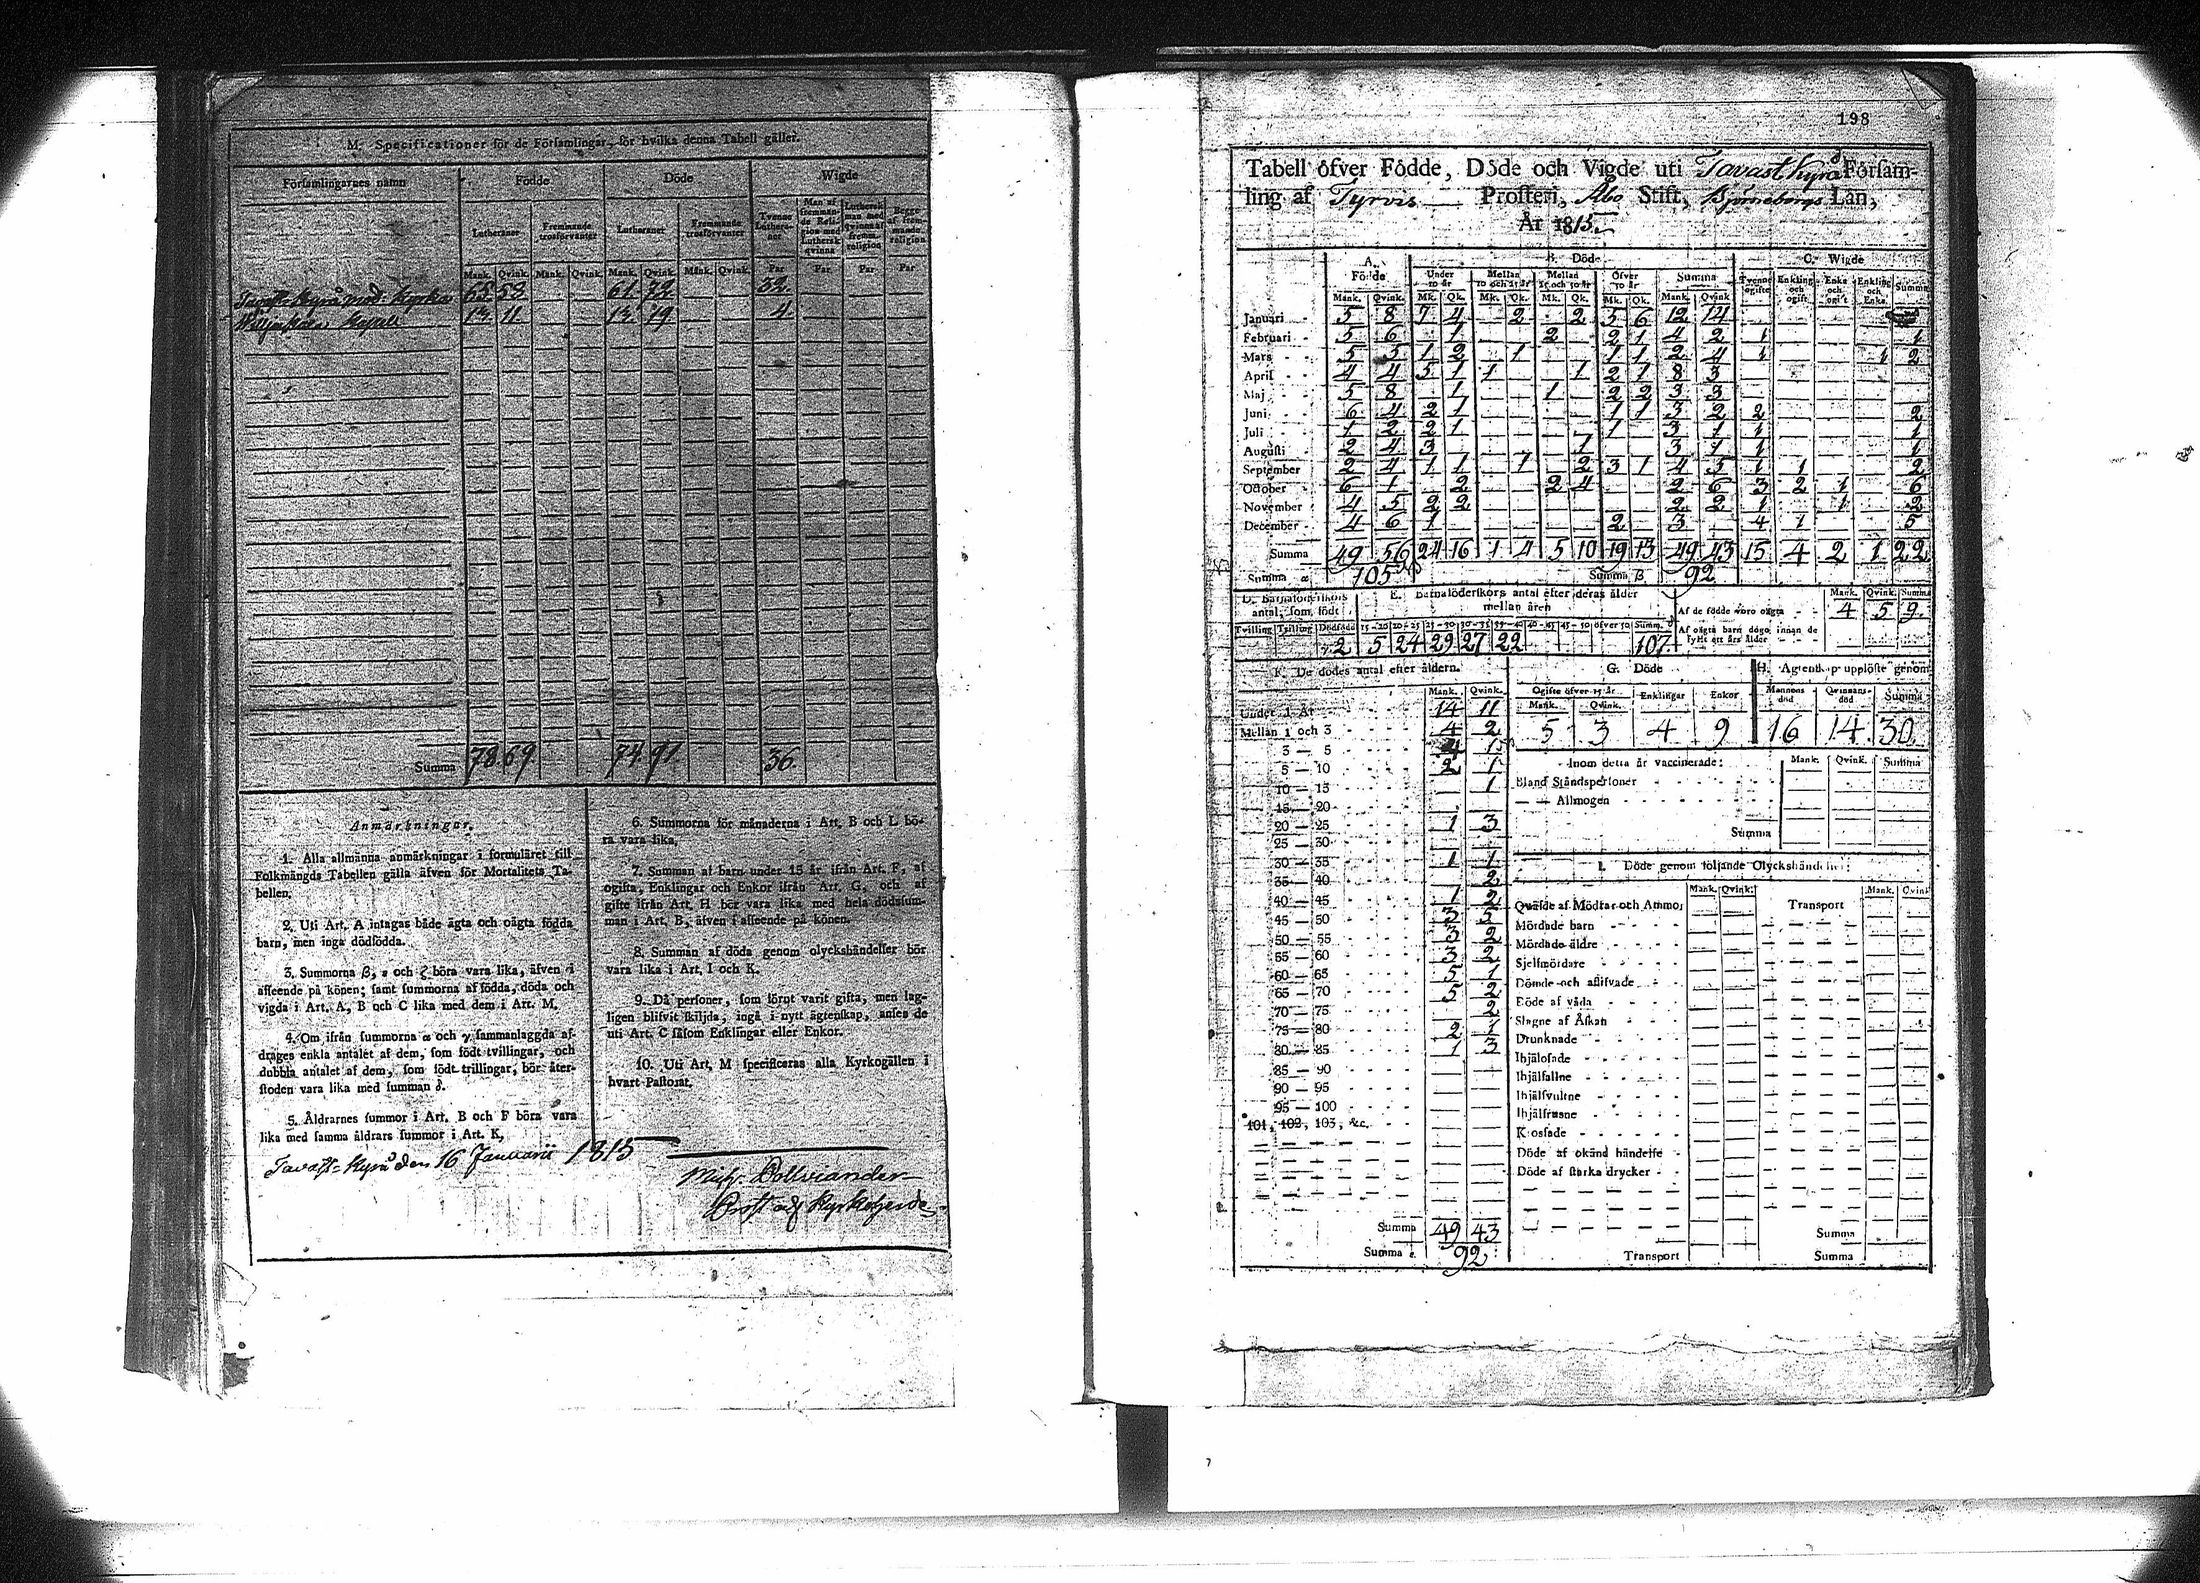 M. Specificationer för de Församlingar, för hvilka denna Tabell gäller.
Församlingarnes namn Födde Döde Wigde
Lutheraner Fremmande trosförvanter Lutheraner Fremmande trosförvanter Tvenne Lutheraner Man af fremmande Religion med Luthersk qvinna Luthersk man med qvinna af fremm. religion Begge af fremmande religion
Mank. Qvink. Mank. Qvink. Mank. Qvink. Mank. Qvink. Par Par Par Par
Tavast-Kyro mod. Kyrka 65 58 61 72 32
Kapell 13 11 13 19 4
Summa 78 69 74 91 36
Anmärkningar.
1. Alla allmänna anmärkningar i formuläret till
Folkmängds Tabellen gälla äfven för Mortalitets Ta-
bellen.
2. Uti Art. A intagas både ägta och oägta födda
barn, men inga dödfödda.
3. Summorna β, ε och ζ böra vara lika, äfven i
afseende på könen; samt summorna af födda, döda och
vigda i Art. A, B och C lika med dem i Art. M.
4. Om ifrån summorna α och γ sammanlaggda af-
drages enkla antalet af dem, som födt tvillingar, och
dubbla antalet af dem, som födt trillingar, bör åter-
stoden vara lika med summan δ.
5. Åldrarnes summor i Art. B och F böra vara
lika med samma åldrars summor i Art. K.
6. Summorna för månaderna i Art. B och L bö-
ra vara lika.
7. Summan af barn under 15 år ifrån Art. F, af
ogifta, Enklingar och Enkor ifrån Art. G, och af
gifte ifrån Art. H bör vara lika med hela dödssum-
man i Art. B, äfven i afseende på könen.
8. Summan af döda genom olyckshändelser bör
vara lika i Art. I och K.
9. Då personer, som förut varit gifta, men lag-
ligen blifvit skiljda, ingå i nytt ägtenskap, anses de
uti Art. C såsom Enklingar eller Enkor.
10. Uti Art. M specificeras alla Kyrkogällen i
hvart Pastorat.
Tavast-Kyro den 16 Januarii 1815
Prost och Kyrkoherde
198
Tabell öfver Födde, Döde och Vigde uti Tavast Kyro Församl-
ling af Tyrvis Prosteri, Åbo Stift, Björneborgs Län,
År 1815.
A. Födde B. Döde C. Wigde
Under 10 år Mellan 10 och 25 år Mellan 25 och 50 år Öfver 50 år Summa Tvenne ogifte Enkling och ogift Enka och ogift Enkling och Enka Summa
Mank. Qvink. Mk. Qk. Mk. Qk. Mk. Qk. Mk. Qk. Mank. Qvink
Januari 5 8 7 4 2 2 5 6 12 14
Februari 5 6 1 2 2 1 4 2 1 1
Mars 5 5 1 2 1 1 1 2 4 1 1 2
April 4 4 5 1 1 1 2 1 8 3
Maj 5 8 1 1 2 2 3 3
Juni 6 4 2 1 1 1 3 2 2 2
Juli 1 2 2 1 1 3 1 1 1
Augusti 2 4 3 1 3 1 1 1
September 2 4 1 1 1 2 3 1 4 5 1 1 2
October 6 1 2 2 4 2 6 3 2 1 6
November 4 5 2 2 2 2 1 1 2
December 4 6 1 2 3 4 1 5
Summa 49 56 24 16 1 4 5 10 19 13 49 43 15 4 2 1 22
Summa α 105 Summa β 92
D. Barnaföderskors antal, som födt
E. Barnaföderskors antal efter deras ålder mellan åren
Tvilling Trilling Dödfödde 15-20 20-25 25-30 30-35 35-40 40-45 45-50 öfver 50 Summ. δ
2 5 24 29 27 22 107
Mank. Qvink. Summa
Af de födde voro oägta 4 5 9
Af oägta barn dogo innan de
fyllt ett års ålder
F. De dödes antal efter åldern.
Mank. Qvink.
Under 1 År 14 11
Mellan 1 och 3 4 2
3 — 5 4 1
5 — 10 2 1
10 — 15 1
15 — 20
20 — 25 1 3
25 — 30
30 — 35 1 1
35 — 40 2
40 — 45 1 2
45 — 50 3 5
50 — 55 3 2
55 — 60 3 2
60 — 65 5 1
65 — 70 5 2
70 — 75 2
75 — 80 2 1
80 — 85 1 3
85 — 90
90 — 95
95 — 100
101, 102, 103, &c.
Summa 49 43
Summa ε 92
G. Döde
Ogifte öfver 15 år Enklingar Enkor
Mank. Qvink.
5 3 4 9
H. Ägtenskap upplöste genom
Mannens död Qvinnans död Summa
16 14 30
Inom detta år vaccinerade: Mank. Qvink. Summa
Bland Ståndspersoner
— — Allmogen
Summa
I. Döde genom följande Olyckshändelser:
Mank. Qvink. Mank. Qvink
Qväfde af Mödrar och Ammor Transport
Mördade barn
Mördade äldre
Sjelfmördare
Dömde och aflifvade
Döde af våda
Slagne af Åskan
Drunknade
Ihjälosade
Ihjälfallne
Ihjälsvultne
Ihjälfrusne
Krossade
Döde af okänd händelse
Döde af starka drycker
Summa
Transport Summa